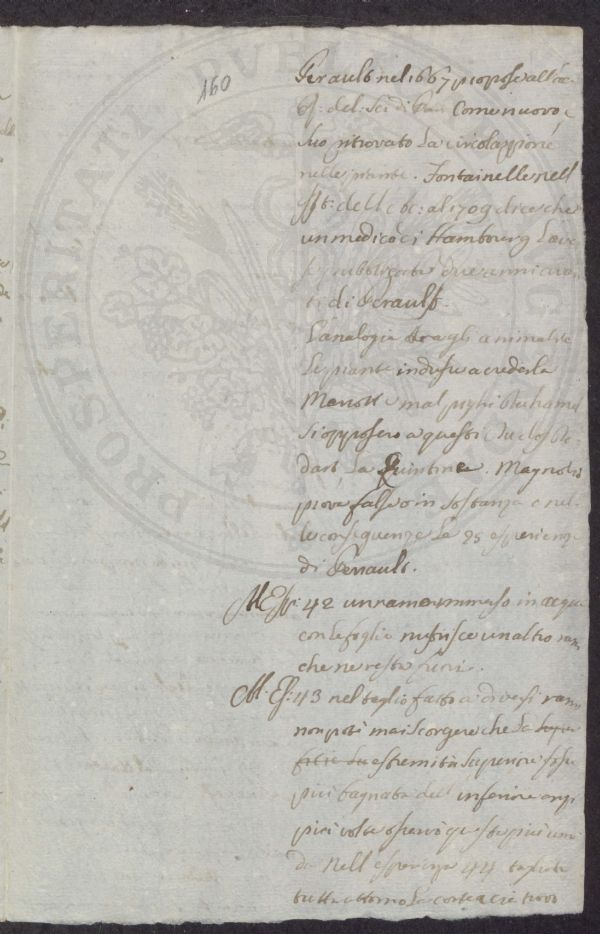 160
Perault nel 1667 propose all'ac:
: del: Sci: di Come nuovo, e
suo ritrovato La circolazzione
nelle piante. Fontainelle nell
dell al 1709 dice che
un medico di Hambourg L'ave
pubblicata due anni avan
ti di Perault.
L'analogia tragli animali, e
Le piante indusse a crederla
Mariotte malpighi Duhamel
Si opposero a questi Du clos Do
dart La Quintine. Magnol
prova falso in sostanza e nel
le conseguenze La 25 esperienza
di Perrault.
M. Esp: 42 un ramo immerso in acqua
con Le foglie nutrisce un altro ramo
che ne resta fuori.
M. Es: 43 nel taglio fatto a diversi rami
non poté mai scorgere che La super
ficie Su estremità Superiore fosse
più bagnata dell' inferiore anzi
più volte osservò questa più umi
da Nell esperienza 44 tagliata
tutta attorno La corteccia trovò